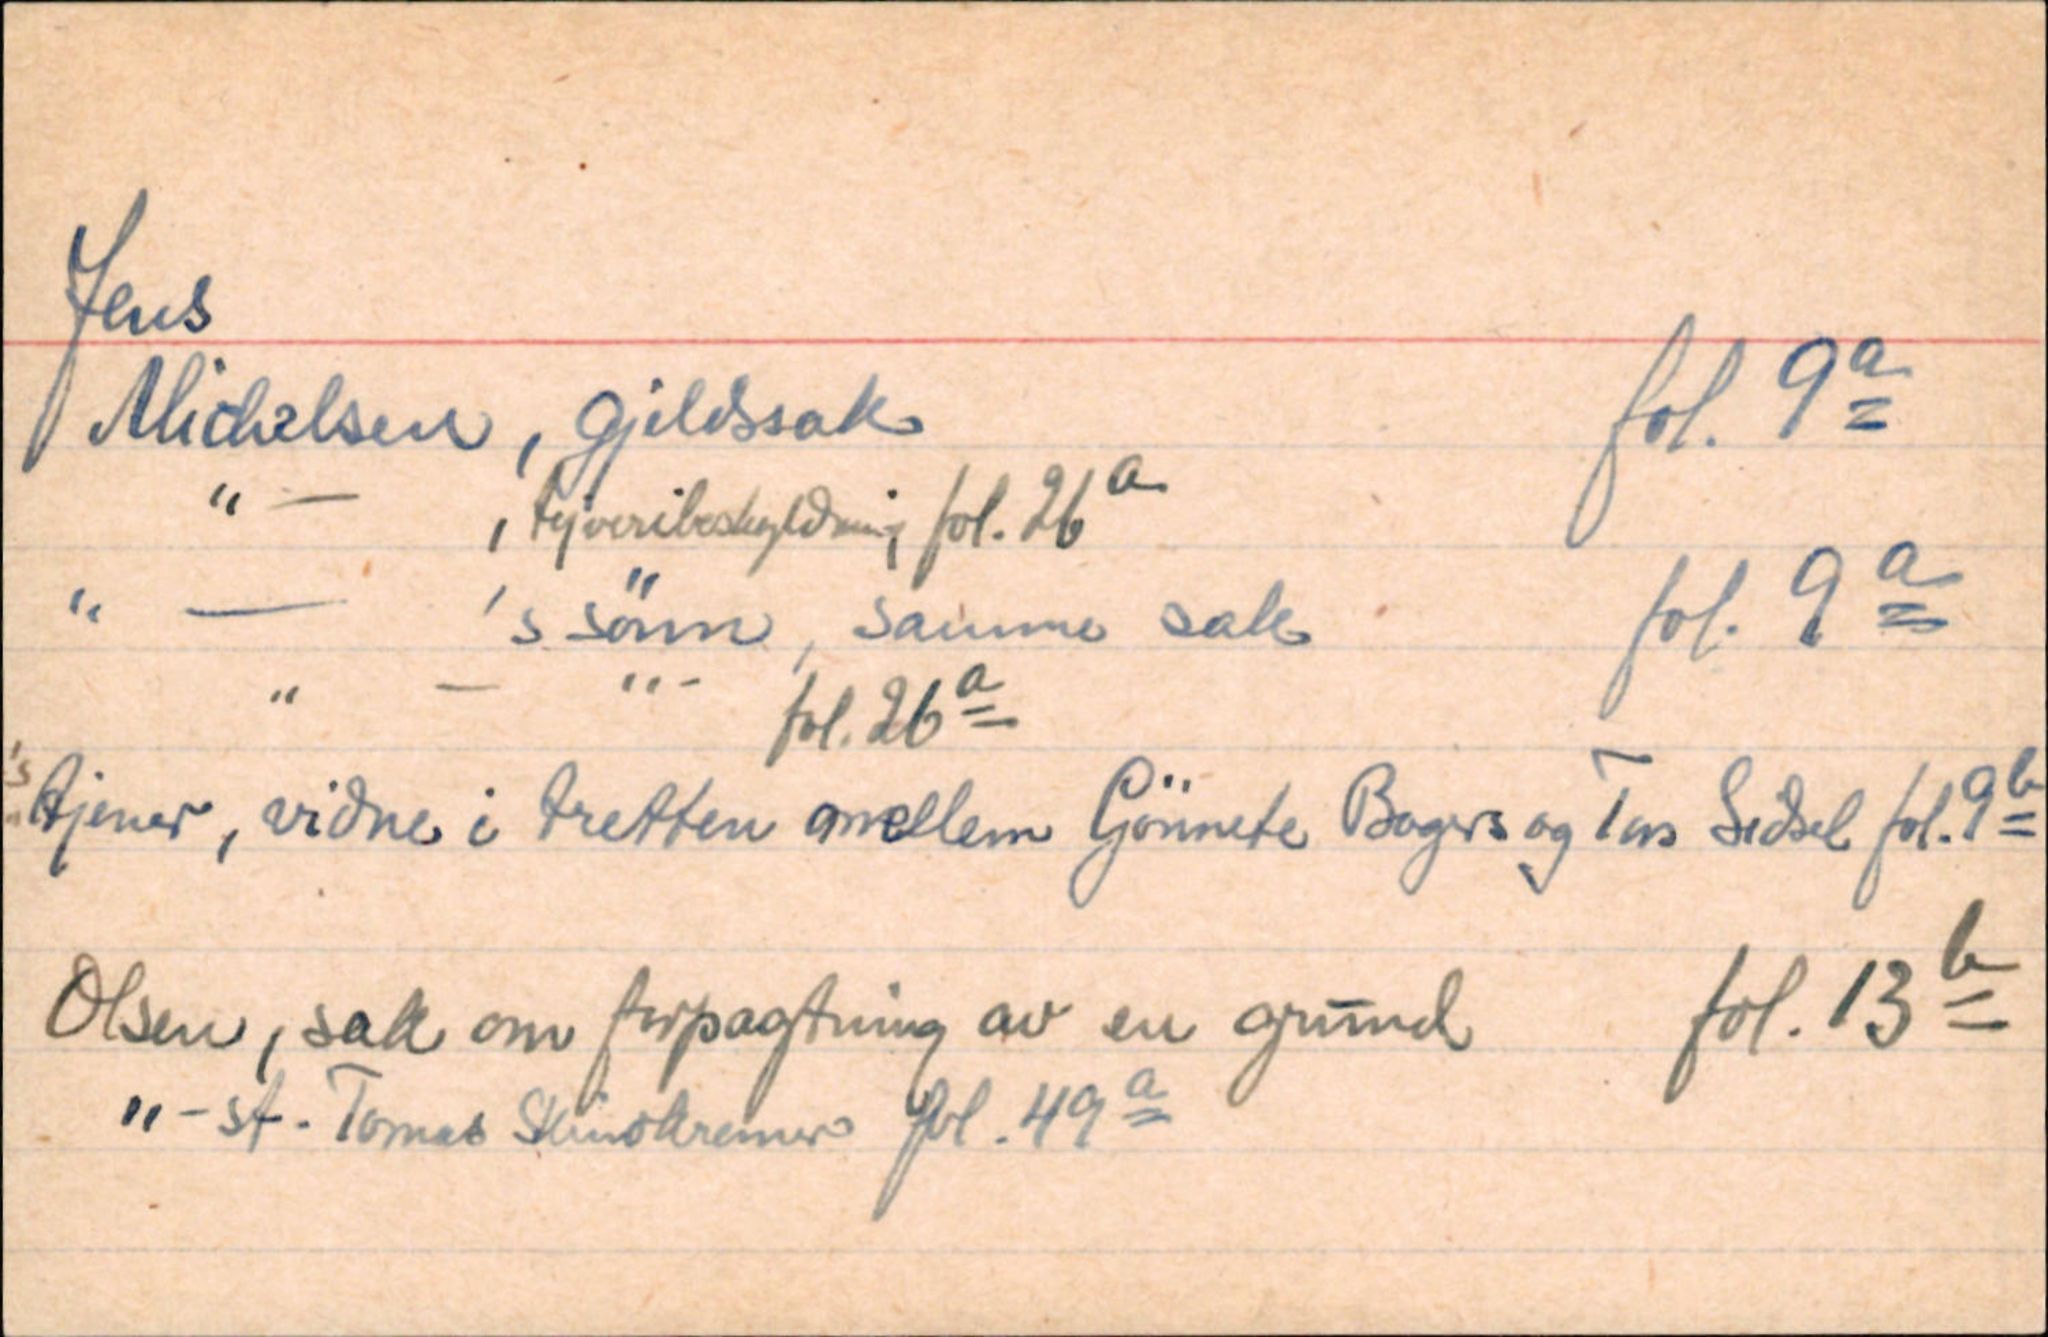 Jens
Michelsen, gjeldssak fol. 9a
" — , tyveribeskyldning fol. 26a
" — 's sönn, samme sak fol. 9a
" — "- fol. 26a
's tjener, vidne i tretten mellem Gönnete Bagers og Tars Sidsel fol. 9b
Olsen, sak om forpagtning av en grund fol. 13b
"- st. Tomas Skindkremer fol. 49a